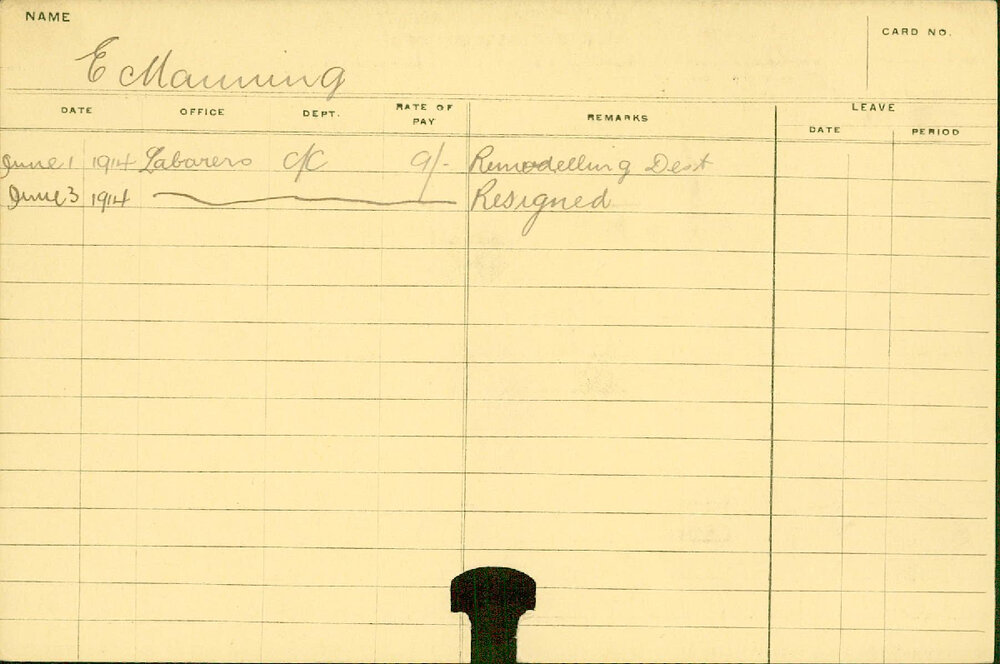 NAME
CARD NO.
E Manning
DATE OFFICE DEPT. RATE OF PAY REMARKS LEAVE
DATE PERIOD
June 1 1914 Labarers C/C 9/- Remodelling Dest
June 3 1914 Resigned